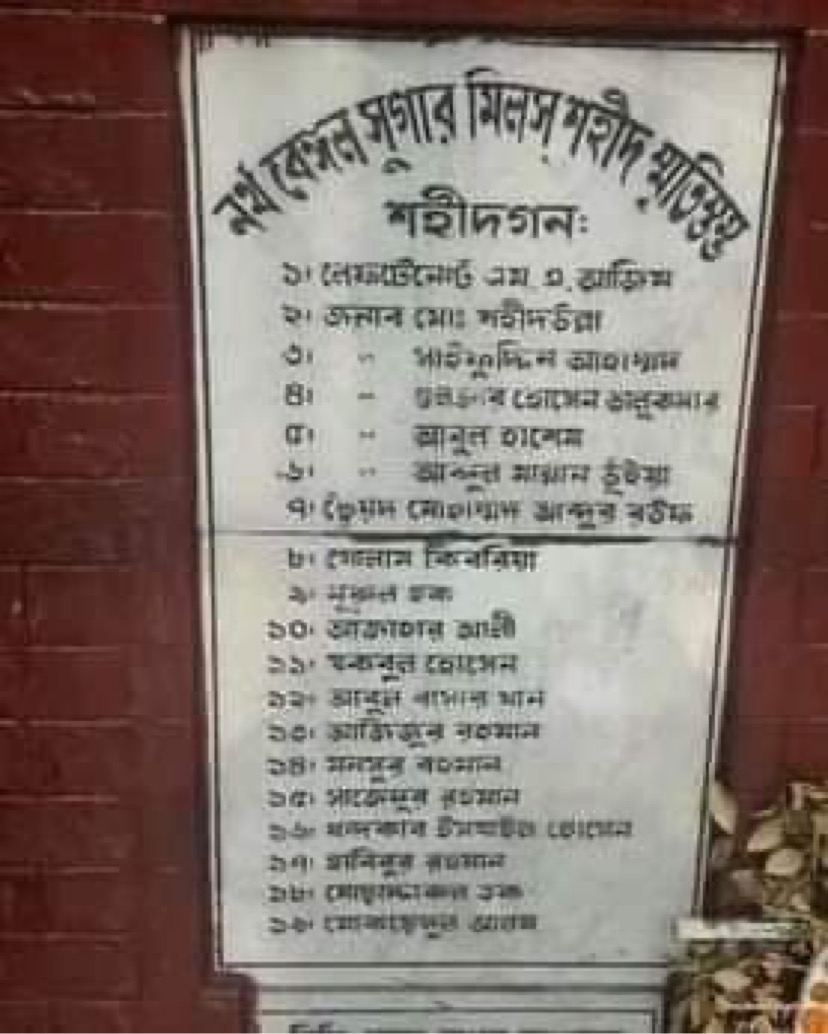 নর্থ বেঙ্গল সুগার মিলস্ শহীদ স্মৃতিস্তম্ভ
শহীদগন:
১। লেফটেনেন্ট এম. এ. আজিম
২। জনাব মোঃ শহীদউল্লা
৩। " সাইফুদ্দিন আহাম্মদ
৪। " হোসেন তালুকদার
৫। " আবুল হাসেম
৬। " আব্দুল মান্নান ভূঁইয়া
৭। সৈয়দ মোহাম্মদ আব্দুর রউফ
৮। গোলাম কিবরিয়া
৯। নূরুল হক
১০। আজাহার আলী
১১। মকবুল হোসেন
১২। আবুল বাসার খান
১৩। আজিজুর রহমান
১৪। মনসুর রহমান
১৫। সাজেদুর রহমান
১৬। খন্দকার ইসমাইল হোসেন
১৭। হাবিবুর রহমান
১৮। হক
১৯। আলম